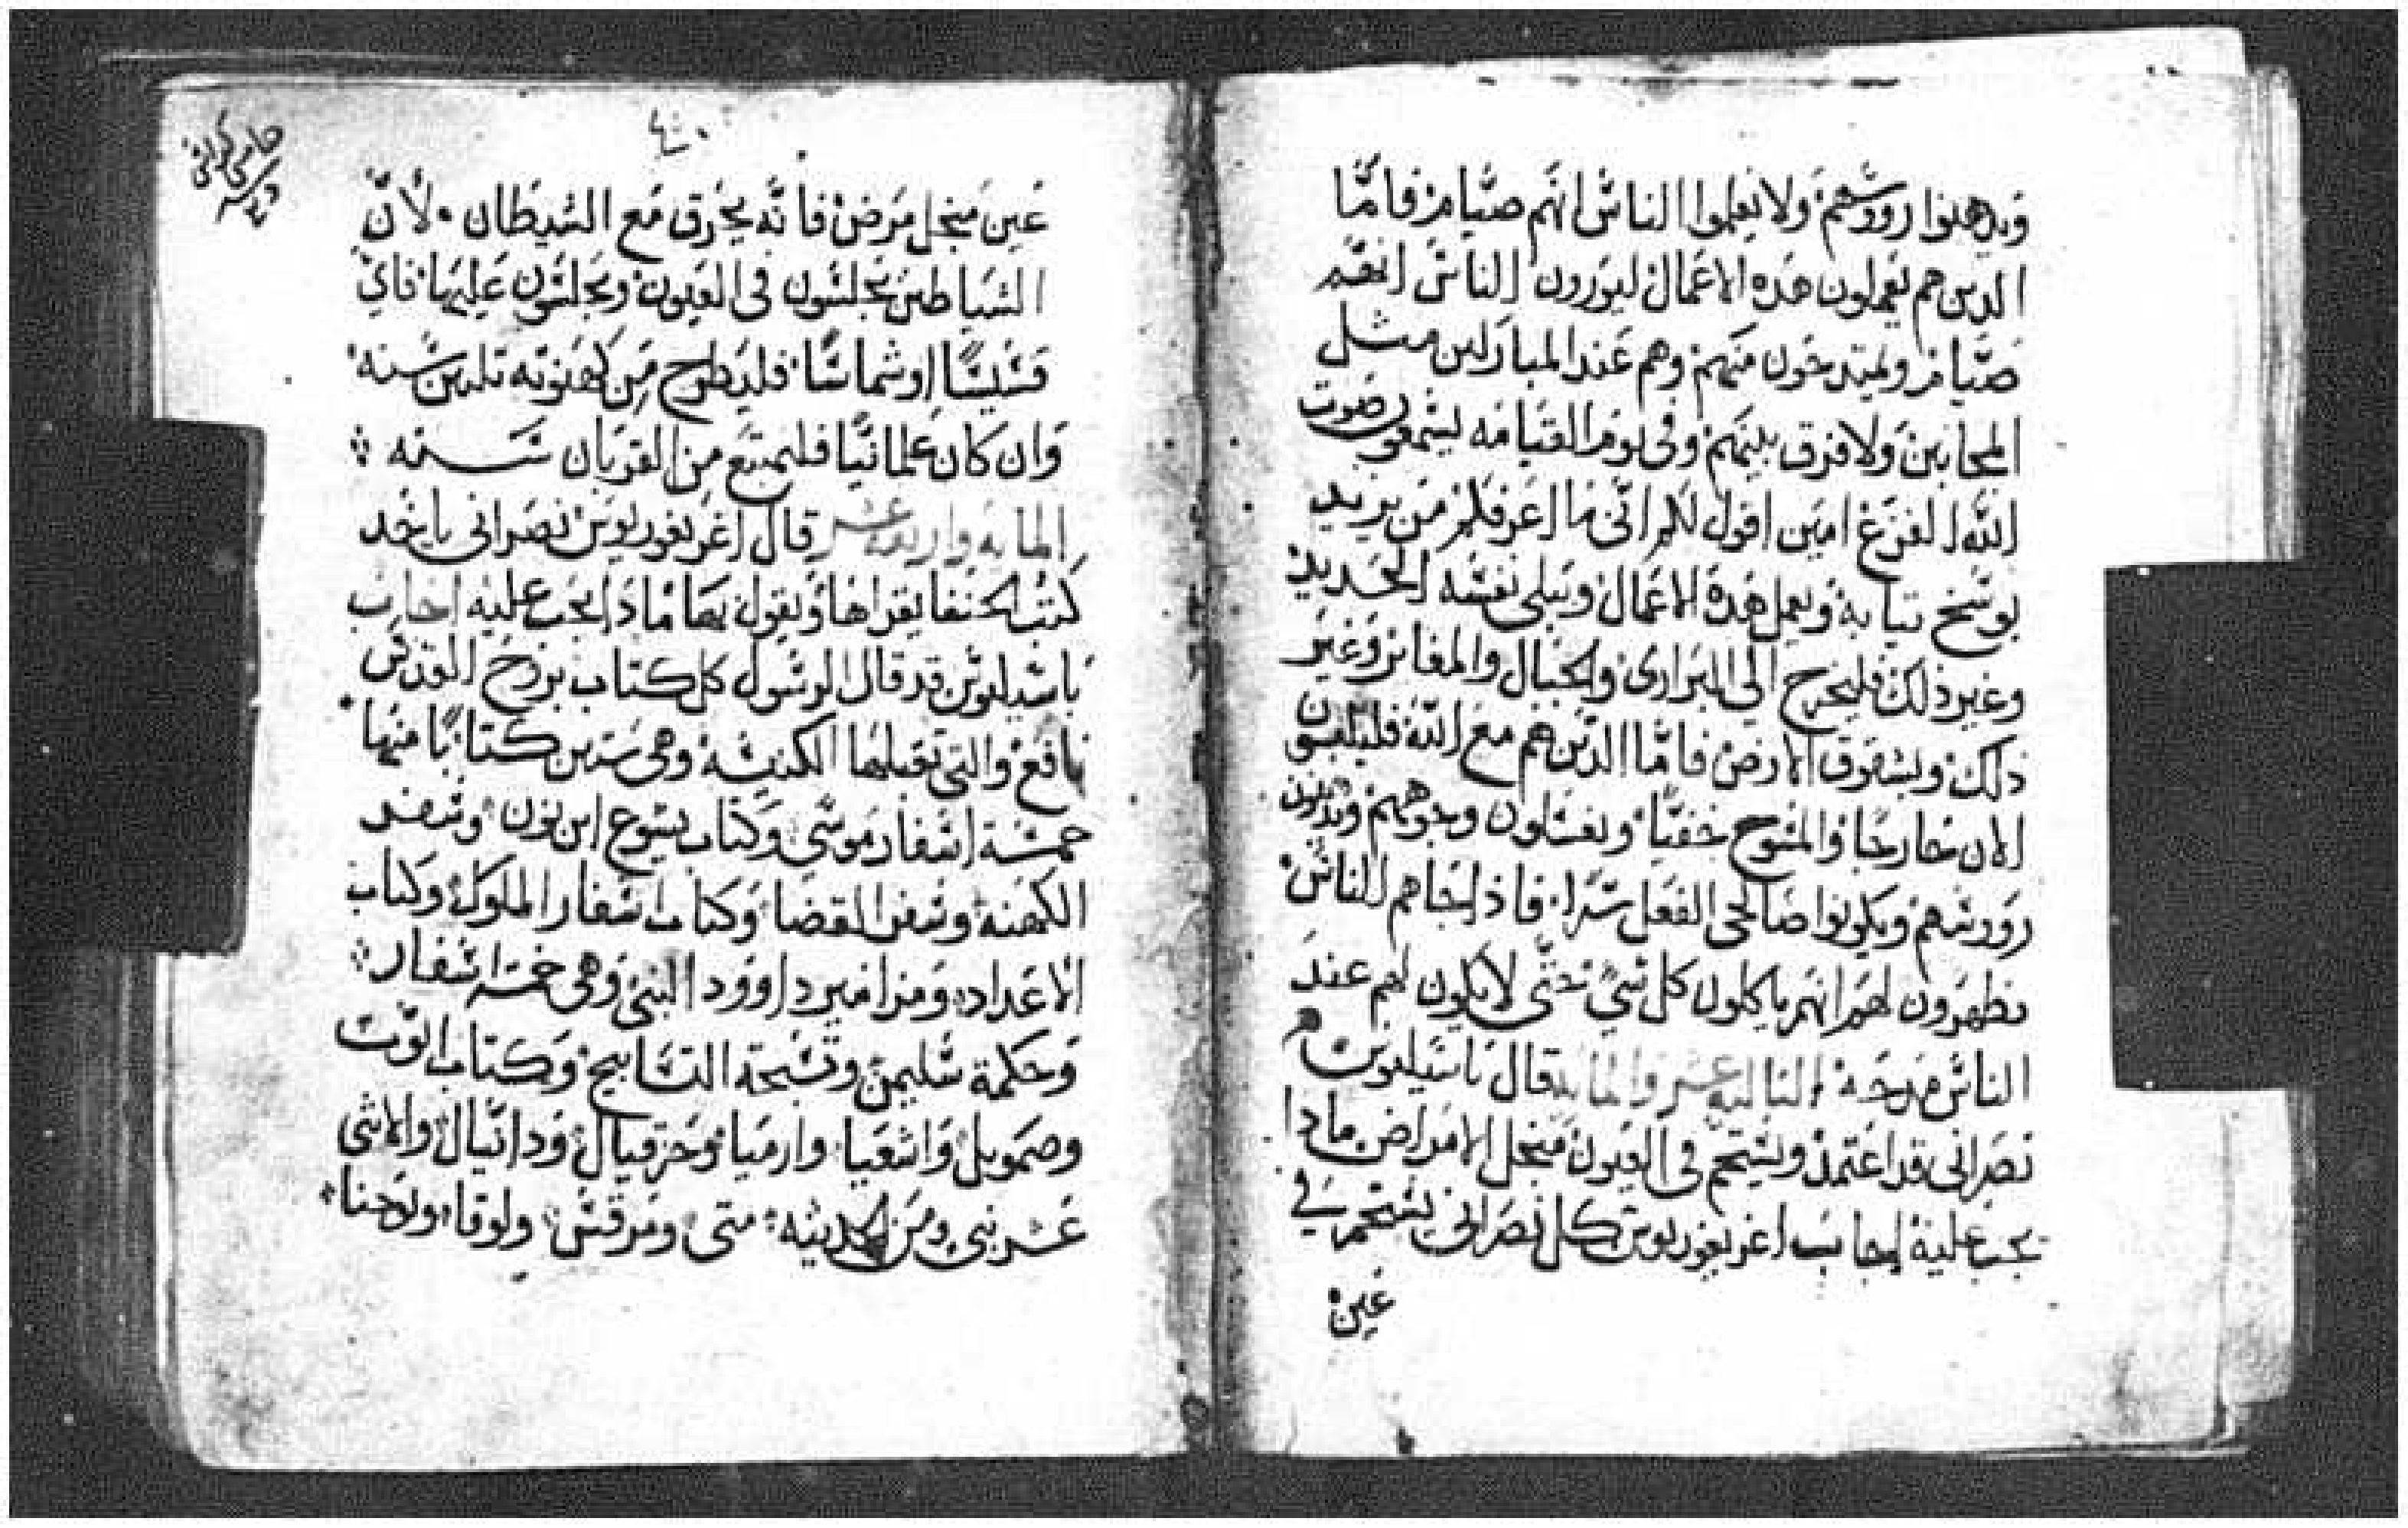 ويدهنوا روؤسهم ولا يعلموا الناس انهم صيام فامّا
الدين هم يعملون هده الاعمال ليورون الناس انهم
صيام وليتدحون منهم وهم عند المبارلين مثل
المجانين ولا فرق بينهم وفي يوم القيامه يسمعون صوت
الله المفزع امين اقول لكم انني ما اعرفكم من يريد
يوسخ تيابه ويعمل هده الاعمال ويبلي نفسه الحديد
وغير ذلك فليخرج الى البراري والجبال والمغاير وغير
ذلك ويستفرق الارض فامّا الدين هم مع الله فليلبسون
الان خارجا والمسوح خفيّا ويغسلون وجوههم ويدهنون
روؤسهم ويكونوا صالحي الفعل سرا فاذا جاهم الناس
يظهرون لهم انهم ياكلون كل شي حتّى لا يكون لهم عند
الناس مدحه الثالثه عشر والمايه قال باسيليوس
نصراني قد اعتمد ويستحم في العيون منجل الامراض مادا
يجب عليه اجاب اغريغوريوس كل نصراني يستحم في
عين
٤٠
عين منجل مرض فانه يحرق مع الشيطان لانّ
الشياطين يجلسون في العيون ويجلسون عليها فاي
قسيسًا او شماسًا فليطرح من كهنوته تلتين سنه
وان كان علمانيًّا فليمتنع من القربان سنه
المايه واربعه عشر قال اغريغوريوس نصراني ياخد
كتب الحنفا يقراها ويقول بها مادا يجب عليه اجاب
باسيليوس قد قال الرسول كل كتاب بروح القدس
نافع والتي تقبلها الكنيسه وهي ستين كتابًا منها
خمسة اسفار موسى وكتاب يسوع ابن نون وسفر
الكهنه وسفر القضا وكتاب اسفار الملوك وكتاب
الاعداد ومزامير داوود النبي وهي خمسه اسفار
وحكمة سليمن وتسبحة التسابيح وكتاب الوت
وصمويل واشعيا وارميا وحزقيال ودانيال والاثني
عشر نبي ومن الحديثه متى ومرقس ولوقا ويوحنا